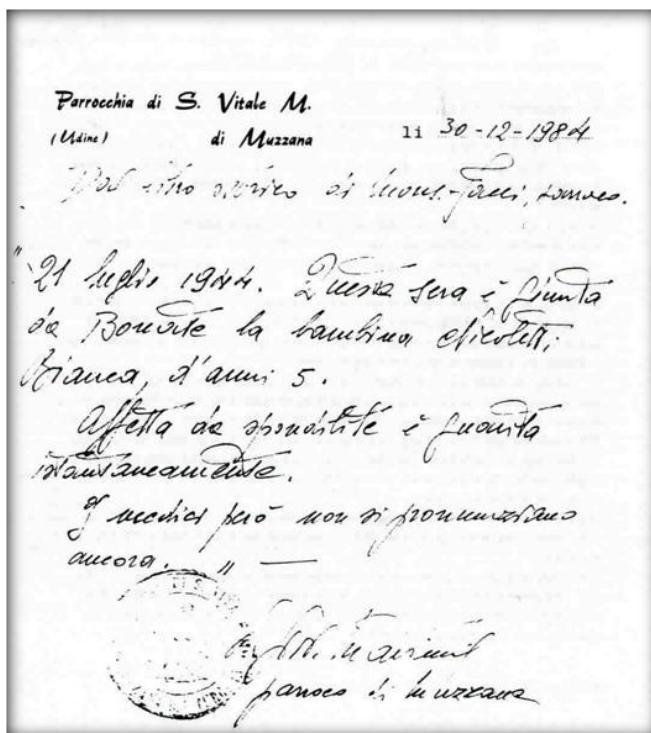 Parrocchia di S. Vitale M.
(Udine) di Muzzana li 30-12-1984
Dal libro storico di Mons. parroco.
"21 luglio 1944. Questa sera è giunta
da Bonate la bambina Nicoletti
Bianca, d'anni 5.
Affetta da spondilite è guarita
istantaneamente.
I medici però non si pronunziano
ancora. " —
parroco di Muzzana